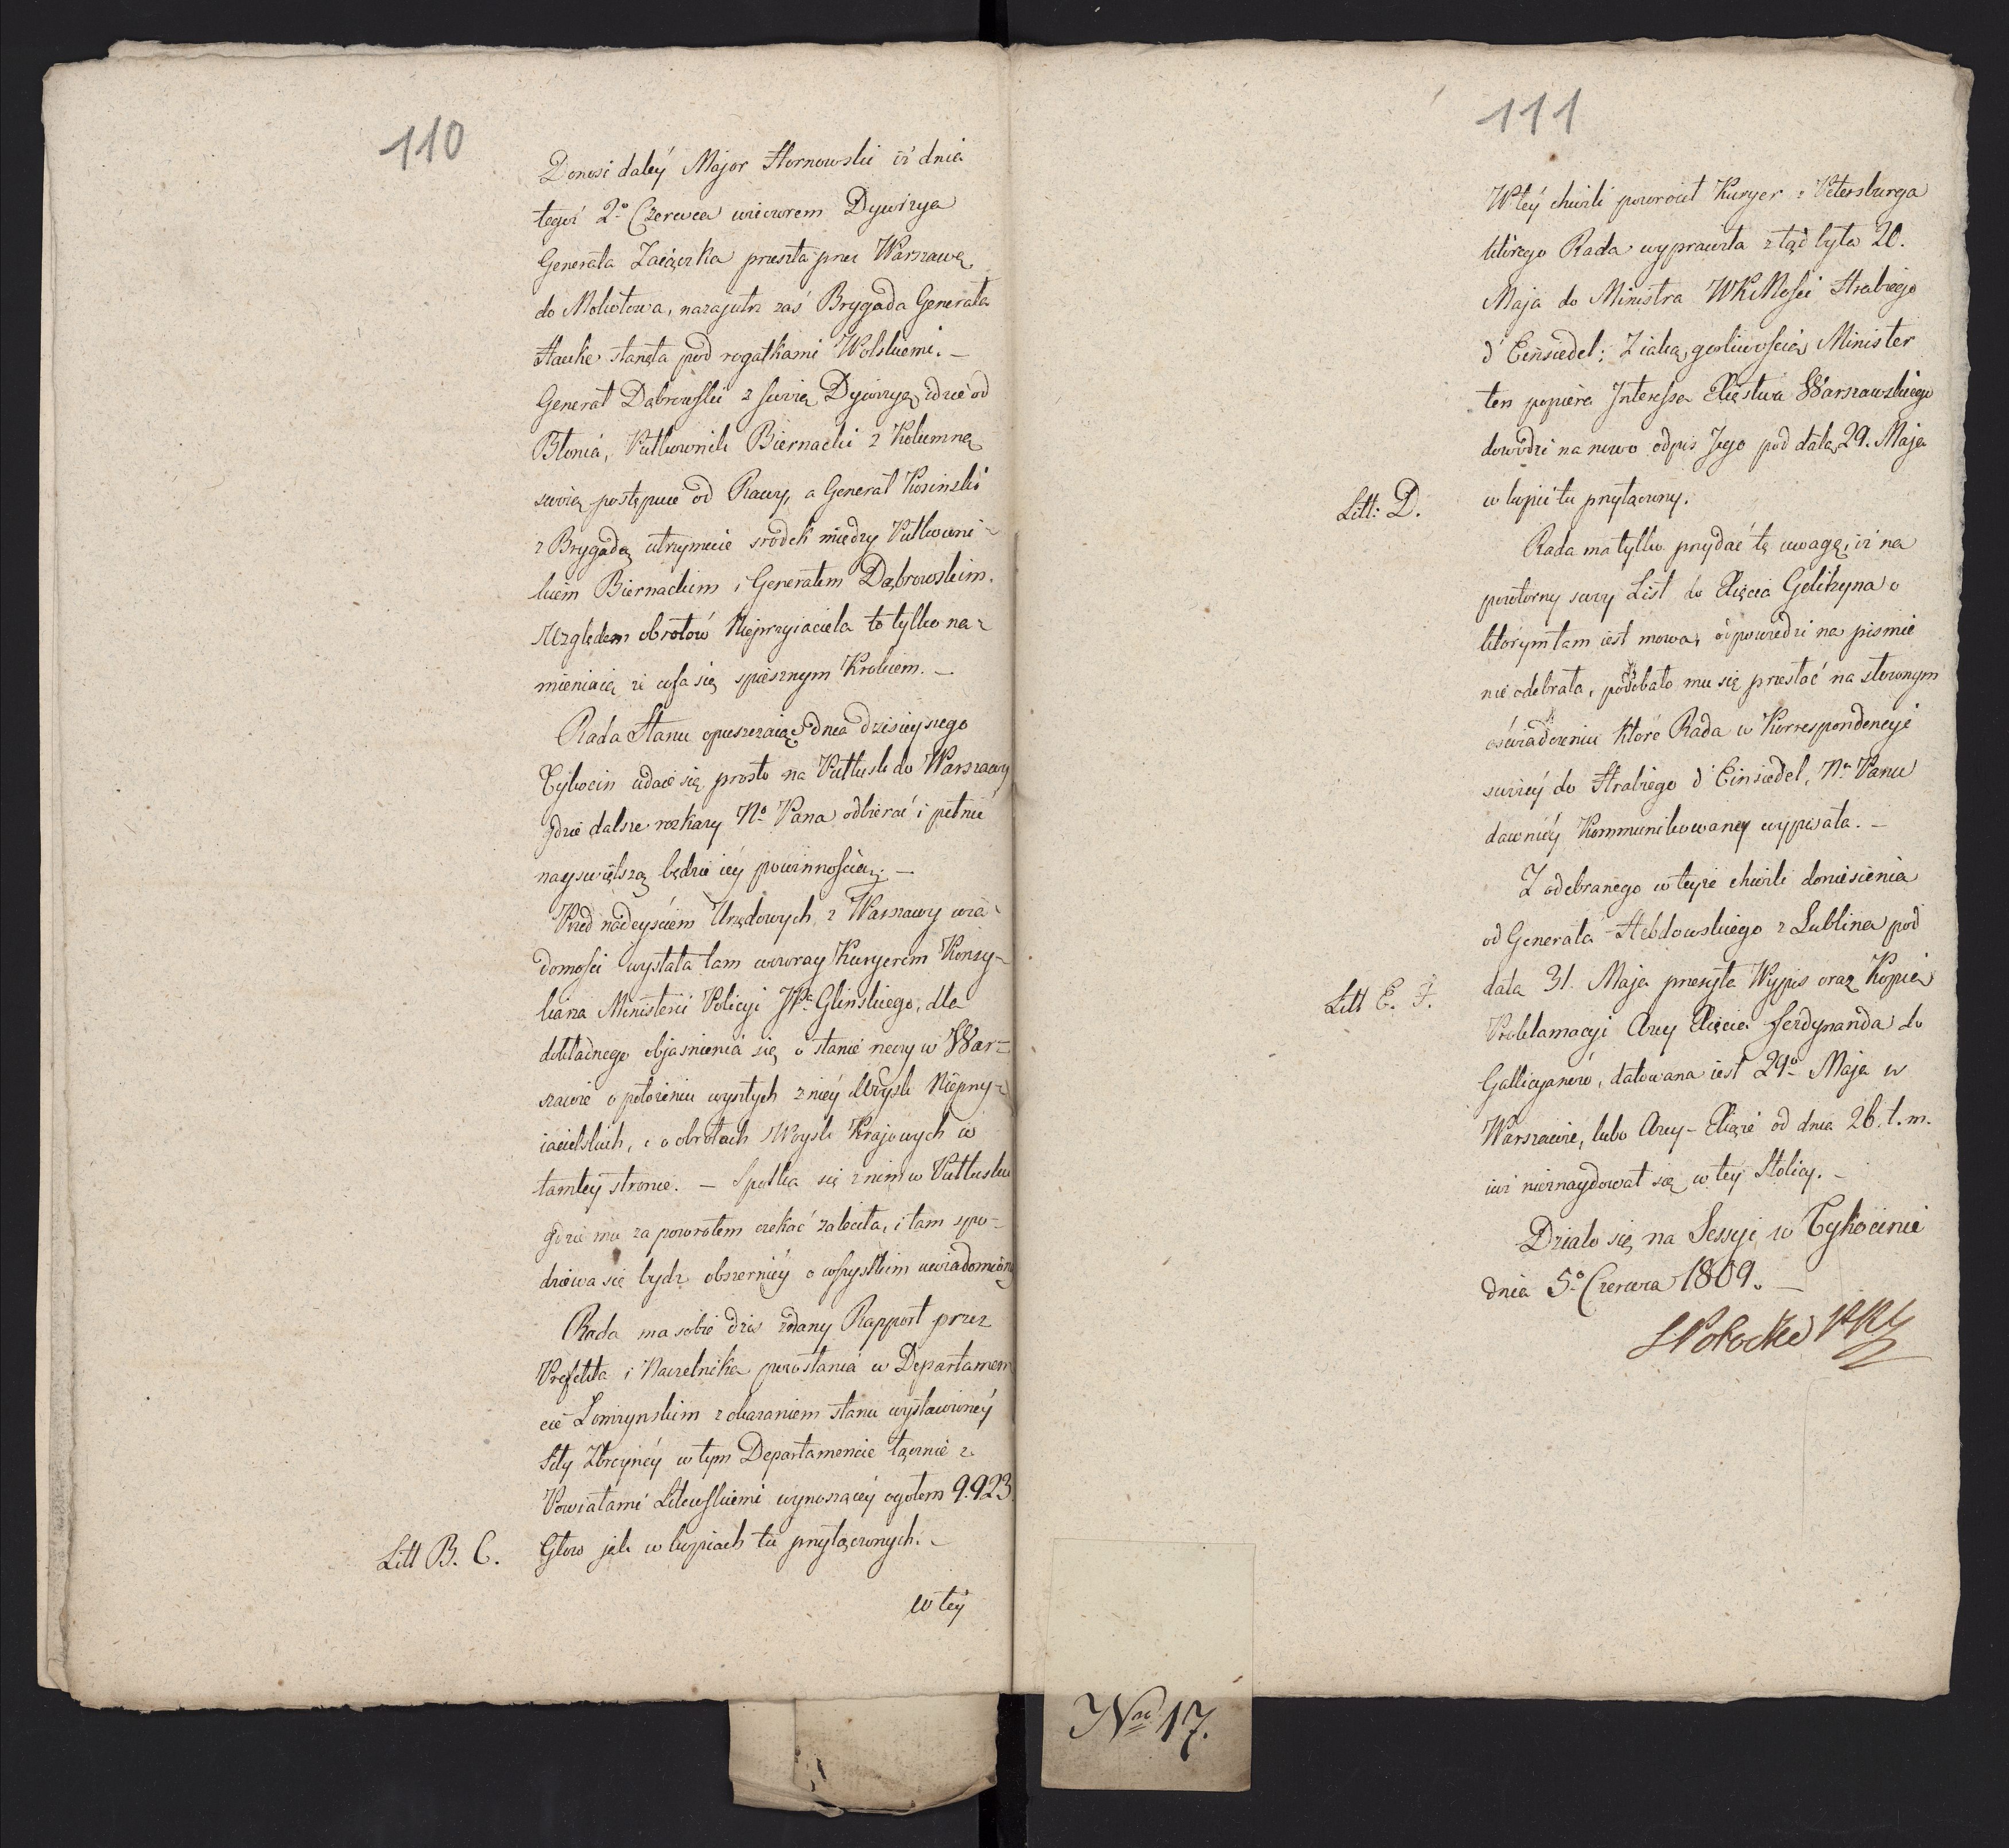 110
Donosi daléy Major Hornowski iż dnia
tegoż 2º Czerwca wieczorem Dywizya
Generała Zaiączka przeszła przez Warszawę
do Mokotowa, nazajutrz zaś Brygada Generała
Hauke stanęła pod rogatkami Wolskiemi. –
Generał Dąbrowski z swoią Dywizyą idzie od
Błonia, Pułkownik Biernacki z Kolumną
swoią postępuie od Rawy, a Generał Kosinski
z Brygadą utrzymuie srodek między Pułkowni-
kiem Biernackim i Generałem Dąbrowskim.
Względem obrotów Nieprzyiaciela to tylko na-
mieniaią że cofa się spiesznym Krokiem. –
Rada Stanu opuszczaiąc dnia dzisieyszego
Tykocin udaie się prosto na Pułtusk do Warszawy
gdzie dalsze rozkazy Nº Pana odbierać i pełnić
nayswiętszą będzie iéy powinnością. –
Przed nadeyściem Urzędowych z Warszawy wia-
domości wysłała tam wczoray Kuryerem Konsy-
liarza Ministerii Policyi JPº Glinskiego, dla
dokładnego objasnienia się o stanie rzeczy w War-
szawie o położeniu wyszłych z niéy Woysk Nieprzy-
iacielskich, i o obrotach Woysk Krajowych w
tamtey stronie. – Spotka się z nim w Pułtusku
gdzie mu za powrotem czekać zaleciła, i tam spo-
dziewa się bydz obszerniéy o wszystkim uwiadomioną
Rada ma sobie dzis zdany Rapport przez
Prefekta i Naczelnika powstania w Departamen
cie Łomzynskim z okazaniem stanu wystawionéy
Siły Zbroynéy w tym Departamencie łącznie z
Powiatami Litewskiemi wynoszącéy ogołem 9.923.
Litt B. C. Głow jak w kopiach tu przyłączonych. –
w téy
111
W téy chwili powrocił Kuryer z Petersburga
którego Rada wyprawiła z tąd była 20.
Maja do Ministra WKMości Hrabiego
d'Einsiedel; Z iaką gorliwością Minister
ten popiéra Interessa Xięstwa Warszawskiego
dowodzi na nowo odpis Jego pod datą 29. Maja
Litt: D. w kopii tu przyłączony.
Rada ma tylko przydać tę uwagę, iż na
powtorny swoy List do Xięcia Golitzyna o
którym tam iest mowa, odpowiedzi na pismie
nie odebrała, podobało mu się przestać na słownym
oświadczeniu które Rada w Korrespondencyi
swoiéy do Hrabiego d'Einsiedel, Nº Panu
dawniéy Kommunikowaney wypisała. –
Z odebranego w teyże chwili doniesienia
od Generała Hebdowskiego z Lublina pod
Litt E. F. data 31. Maja przesyła Wypis oraz Kopią
Proklamacyi Arcy Xięcia Ferdynanda do
Gallicyanów, datowana iest 29º Maja w
Warszawie, lubo Arcy-Xiąże od dnia 26. t. m.
iuż nieznaydował się w tey Stolicy. –
Działo się na Sessyi w Tykocinie
dnia 5º Czerwca 1809. –
S Potocki PRS
Nro 17.